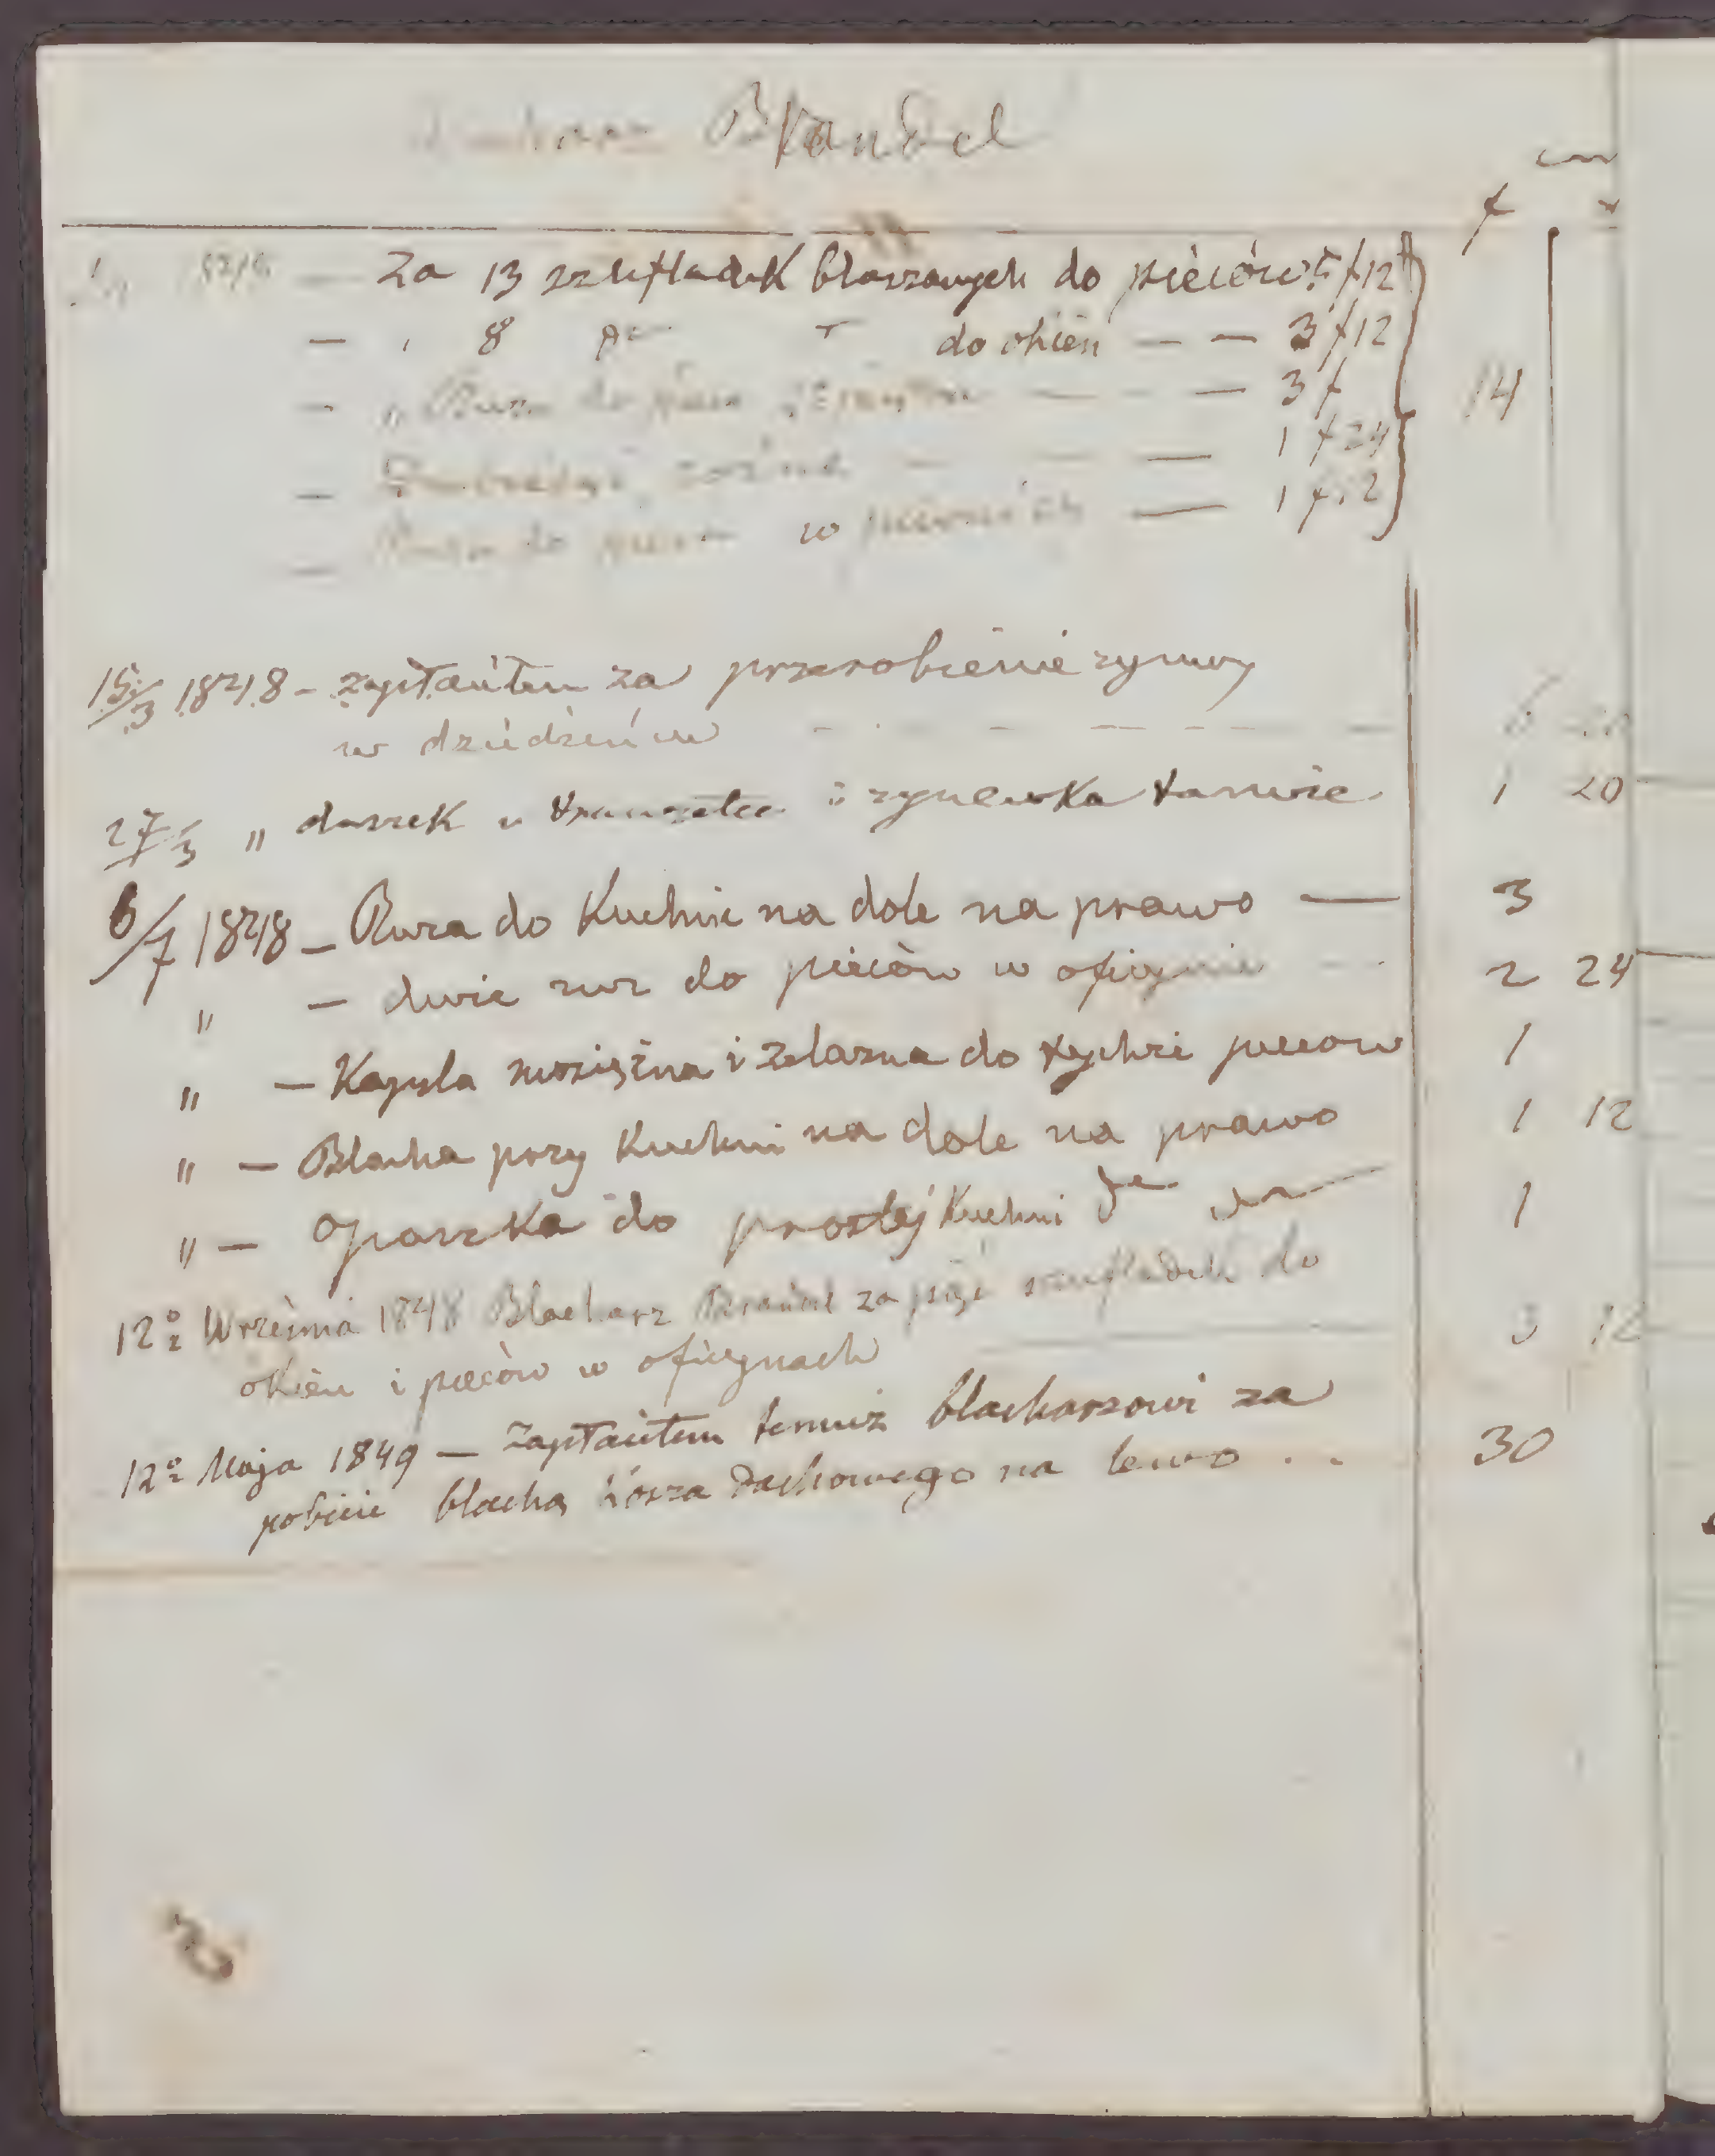 Blacharz Brandel
f
1848 — Za 13 szufladek blaszanych do pieców 5 f 12
— " 8 do okien — — 3 f 12
— " Rura do pieca — — 3 f 14
— — — 1 f 24
— Rura do pieca w piwnicach — 1 f 12
15/3 1848 - zapłaciłem za przerobienie rynwy
w dziedzińcu — — — — — 6
27/3 " daszek u i rynewka tamże 1 20
6/7 1848 - Rura do Kuchni na dole na prawo — 3
" — dwie rur do pieców w oficynie — 2 24
" — Kapsla mosiężna i żelazna do tychże pieców 1
" — Blacha przy Kuchni na dole na prawo 1 12
" — Oparzka do prostej Kuchni 1
12º Wrzesnia 1848 Blacharz Brandel za pięć szufladek do
okien i pieców w oficynach 3 12
12º Maja 1849 — Zapłaciłem temuż blacharzowi za
pobicie blachą kósza dachowego na lewo . . 30